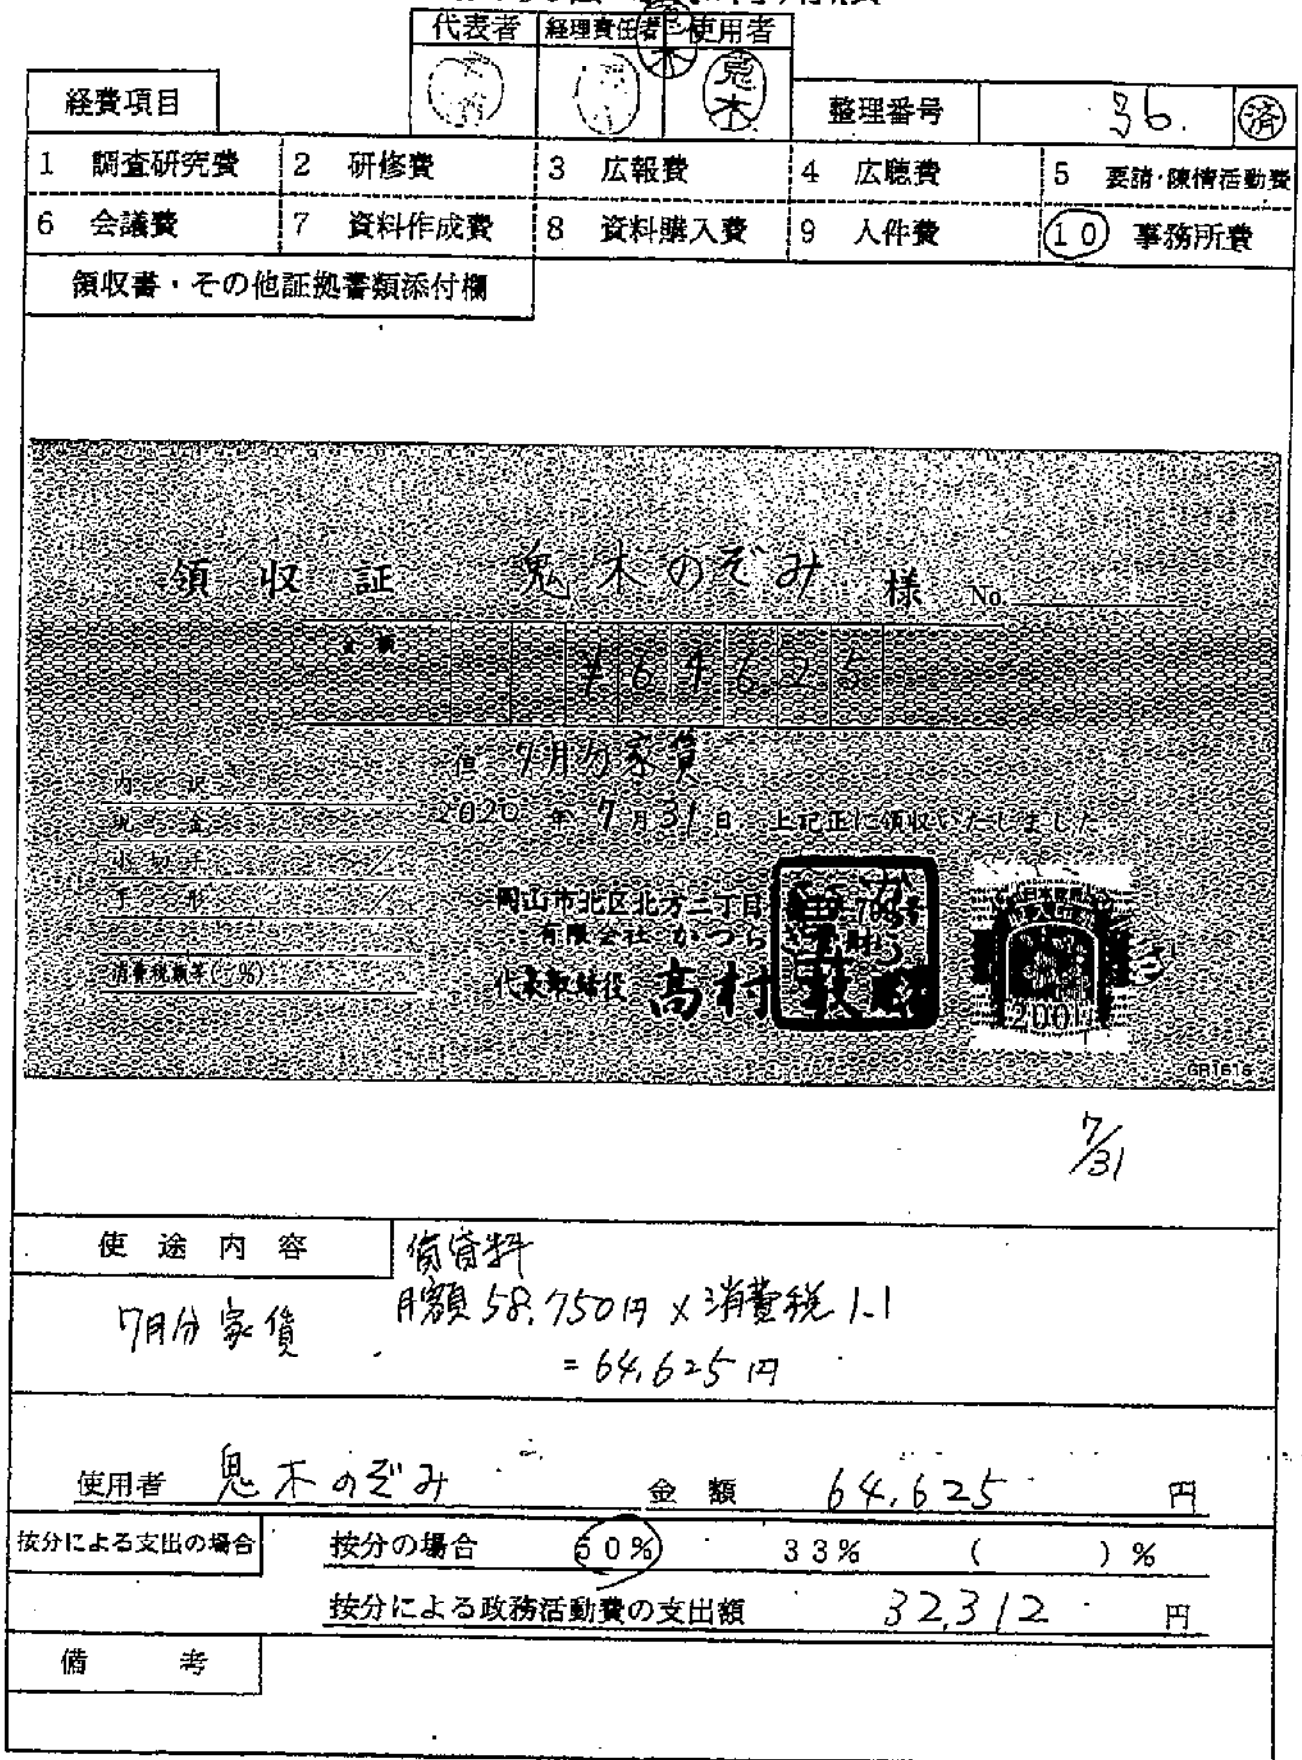 代表者 経理責任者 使用者
鬼木
経費項目
整理番号 36. 済
1 調査研究費 2 研修費 3 広報費 4 広聴費 5 要請・陳情活動費
6 会議費 7 資料作成費 8 資料購入費 9 人件費 10 事務所費
領収書・その他証拠書類添付欄
領収証 鬼木のぞみ 様 No.
金額 ¥64625
但 7月分家賃
内訳
2020年7月31日 上記正に領収いたしました
現金
小切手
手形
岡山市北区北方二丁目
有限会社 かつら
消費税額等( %)
代表取締役 高村
200
GR1616
7/31
使途内容
賃貸料
7月分家賃
月額58,750円×消費税1.1
=64,625円
使用者 鬼木のぞみ 金額 64,625 円
按分による支出の場合 按分の場合 50% 33% ( )%
按分による政務活動費の支出額 32,312 円
備考